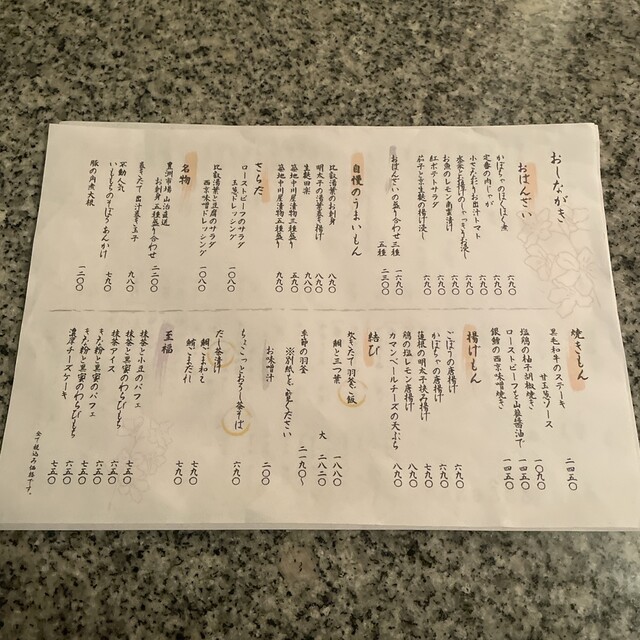 おしながき
おばんざい
かぼちゃのほくほく煮
六九〇
定番の肉じゃが
六九〇
小さなおしりお出汁トマト
六九〇
水菜と お揚げの
六九〇
お魚の
六九〇
紅ポテトサラダ
六九〇
茄子と生麩の揚げ浸し
六九〇
おばんざいの盛り合わせ 三種
一六九〇
五種
二三九〇
自慢のうまいもん
比叡湯葉のお刺身
八九〇
明太子の湯葉春巻揚げ
八九〇
生麩田楽
九八〇
築地中川屋漬物三種盛り
五九〇
築地中川屋漬物五種盛り
九九〇
さらだ
ローストビーフのサラダ
玉葱ドレッシング
一〇八〇
比叡湯葉と豆腐のサラダ
西京味噌ドレッシング
一〇八〇
名物
豊洲市場 山治直送
お刺身 五種盛り合わせ
二二〇〇
巻きたて出汁巻き玉子
九八〇
不動人気
いももちのそぼろあんかけ
七九〇
豚の角煮大根
一二〇〇
焼きもん
黒毛和牛のステーキ
甘玉葱ソース
二四五〇
塩鶏の柚子胡椒焼き
一〇九〇
ローストビーフを山葵醤油で
一四五〇
銀鱈の西京味噌焼き
一四五〇
揚げもん
ごぼうの唐揚げ
六九〇
かぼちゃの唐揚げ
六九〇
蓮根の明太子挟み揚げ
七九〇
鶏の塩レモン唐揚げ
八九〇
カマンベールチーズの天ぷら
八九〇
結び
炊きたて羽釜ご飯
鯛と三つ葉
一八八〇
大 二八二〇
季節の羽釜
※別紙をご覧ください
二一九〇
お味噌汁
二〇〇
ちょこっとおろし茶そば
六九〇
だし茶漬け
鯛ごま和え
七九〇
鯖ごまだれ
七九〇
至福
抹茶と小豆のパフェ
七五〇
抹茶と黒蜜のわらびもち
六五〇
抹茶アイス
六五〇
きな粉と黒蜜のパフェ
七五〇
きな粉と黒蜜のわらびもち
六五〇
濃厚チーズケーキ
七五〇
全て税込み価格です。